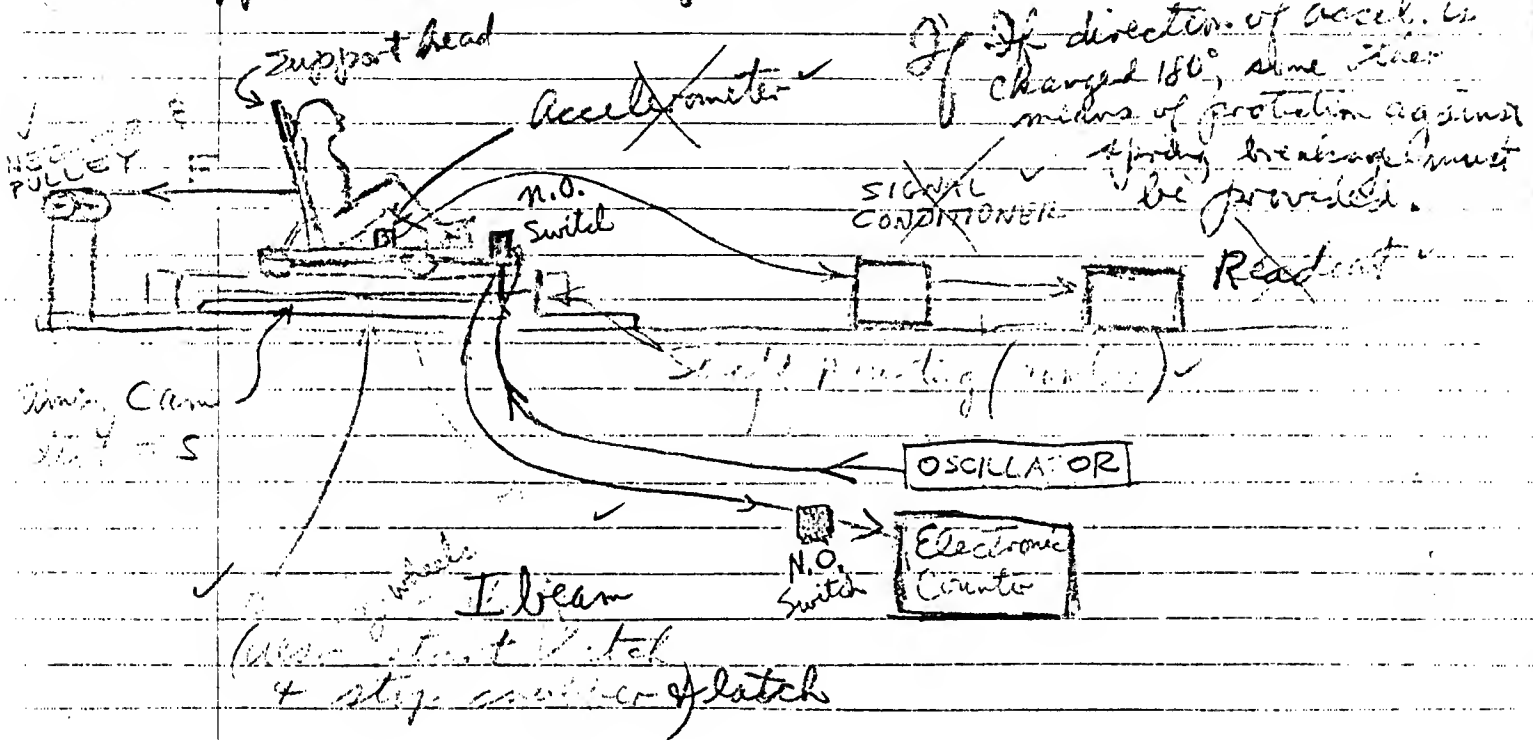 Support head
Accelerometer
If If direction of accel. is
changed 180°, some other
means of protection against
spring breakage must
be provided.
PULLEY
F
N.O.
Switch
SIGNAL
CONDITIONER
Readout
Cam
S
OSCILLATOR
N.O.
Switch
Electronic
Counter
wheels
I beam
& stop & latch